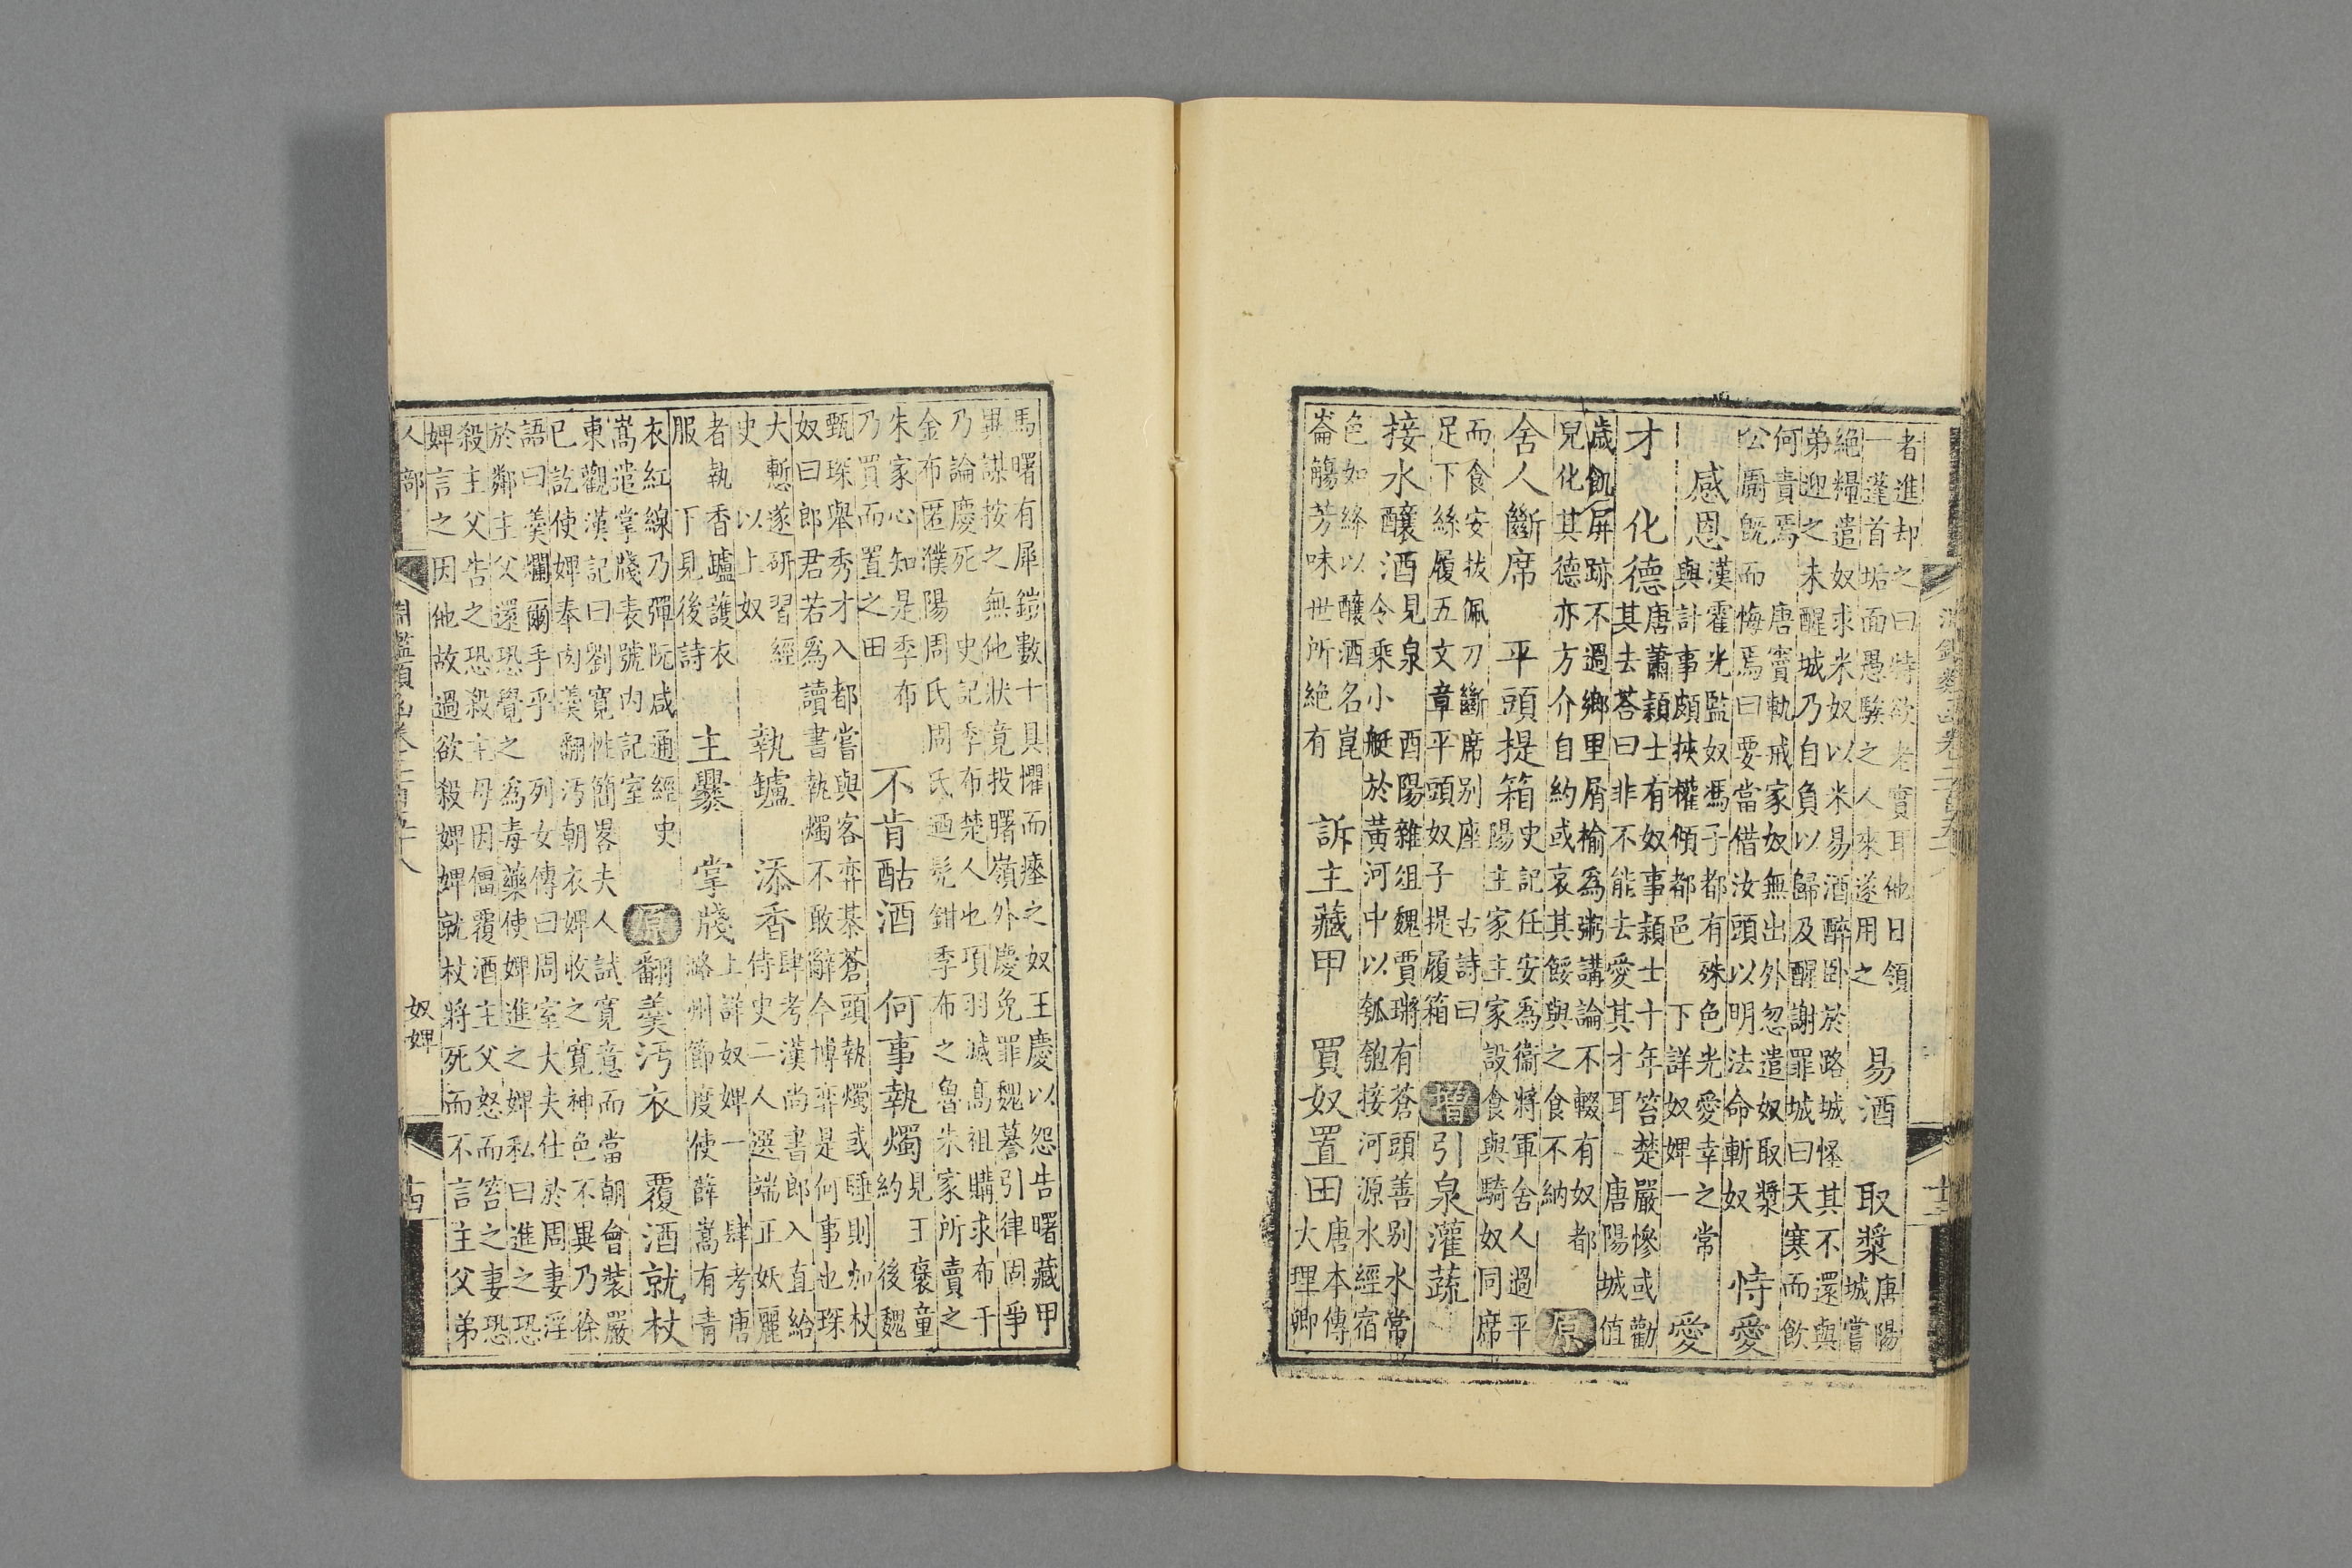 者進却之曰特欲老實耳他日領
一蓬首垢面愚騃之人來遂用之
易酒 取漿
唐陽
城嘗
絶糧遣奴求米奴以米易酒醉卧於路城怪其不還與
弟迎之未醒城乃自負以歸及醒謝罪城曰天寒而飲
何責焉 唐竇軌戒家奴無出外忽遣奴取漿
公厨既而悔焉曰要當借汝頭以明法命斬奴
恃愛
感恩
漢霍光監奴馮子都有殊色光愛幸之常
與計事頗挾權傾都邑 下詳奴婢一
愛
才 化德
唐蕭穎士有奴事穎士十年笞楚嚴慘或勸
其去荅曰非不能去愛其才耳 唐陽城值
歲飢屏跡不過鄉里屑榆爲粥講論不輟有奴都
兒化其德亦方介自約或哀其餒與之食不納
原
舍人斷席 平頭提箱
史記任安爲衞將軍舍人過平
陽主家主家設食與騎奴同席
而食安拔佩刀斷席别座 古詩曰
足下絲履五文章平頭奴子提履箱
增 引泉灌蔬
接水釀酒
見泉 酉陽雜俎魏賈瑒有蒼頭善别水常
令乘小艇於黃河中以瓠匏接河源水經宿
色如絳以釀酒名崑
崙觴芳味世所絶有
訴主藏甲 買奴置田
唐本傳
大理卿
馬曙有犀鎧數十具懼而瘞之奴王慶以怨告曙藏甲
異謀按之無他狀竟投曙嶺外慶免罪魏謩引律固爭
乃論慶死 史記季布楚人也項羽滅高祖購求布千
金布匿濮陽周氏周氏迺髡鉗季布之魯朱家所賣之
朱家心知是季布
乃買而置之田
不肯酤酒 何事執燭
見王褒童
約 後魏
甄琛舉秀才入都嘗與客弈棊蒼頭執燭或睡則加杖
奴曰郎君若爲讀書執燭不敢辭今博弈是何事也琛
大慙遂研習經
史 以上奴
執鑪 添香
肆考漢尚書郎入直給
侍史二人選端正妖麗
者執香鑪護衣
服 下見後詩
主爨 掌牋
上詳奴婢一 肆考唐
潞州節度使薛嵩有青
衣紅線乃彈阮咸通經史
嵩遣掌牋表號内記室
原 翻羹汚衣 覆酒就杖
東觀漢記曰劉寬性簡畧夫人試寬意而當朝會裝嚴
已訖使婢奉肉羹翻汚朝衣婢收之寬神色不異乃徐
語曰羹爛爾手乎 列女傳曰周室大夫仕於周妻淫
於鄰主父還恐覺之爲毒藥使婢進之婢私曰進之恐
殺主父告之恐殺主母因僵覆酒主父怒而笞之妻恐
婢言之因他故過欲殺婢婢就杖將死而不言主父弟
人部 奴婢